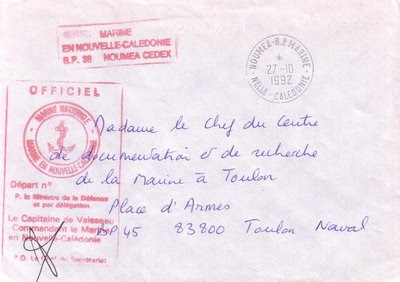 MARINE
EN NOUVELLE-CALEDONIE
B.P. 38 NOUMEA CEDEX
NOUMEA-R.P. MARINE
*
27-10
1992
NELLE-CALEDONIE
OFFICIEL
MARINE NATIONALE
MARINE EN NOUVELLE-CALEDONIE
Départ n°
P. le Ministre de la Défense
et par délégation
Le Capitaine de Vaisseau
Commandant la Marine
en Nouvelle-Calédonie
P.O. Le Chef du Secrétariat
Madame le Chef du Centre
de documentation et de recherche
de la Marine à Toulon
Place d'Armes
BP 45 83800 Toulon Naval